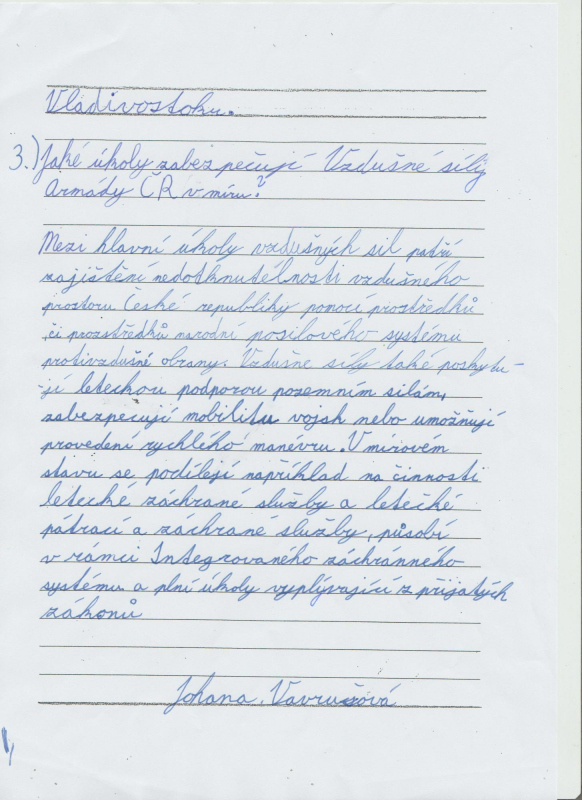 Vladivostoku.
3.) Jaké úkoly zabezpečují Vzdušné síly
Armády ČR v míru?
Mezi hlavní úkoly vzdušných sil patří
zajištění nedotknutelnosti vzdušného
prostoru České republiky pomocí prostředků
či prozstředků narodní posilového systému
protivzdušné obrany. Vzdušne síly také poskytu-
jí leteckou podporou pozemním silám,
zabezpecují mobilitu vojsk nebo umožňují
provedení rychlého manévru. V mírovém
stavu se podílejí například na činnosti
letecké záchrané služby a letečké
pátrací a záchrané služby, působí
v rámci Integrovaného záchránného
systému a plní úkoly vyplývající z přijatých
zákonů
Johana Vavrušová